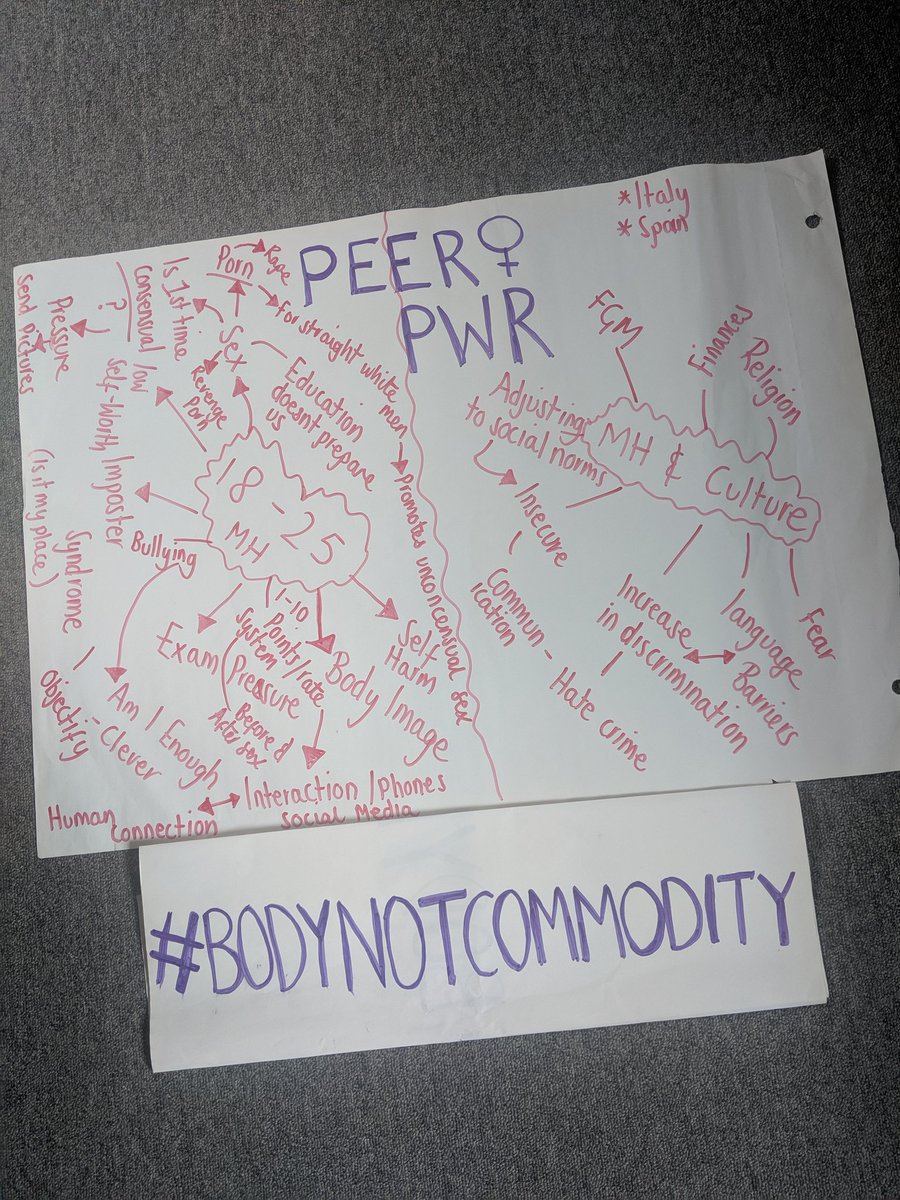 PEER
PWR
* Italy
* Spain
18-25
MH
Sex
Porn
Rape
For straight white men
Promotes unconcensual sex
Is 1st time
consensual
?
Revenge
Porn
Education
doesnt prepare
us
Pressure
Send pictures
low
self-Worth
Imposter
Syndrome
(Is it my place)
Bullying
Objectify
Am I Enough
- Clever
Exam Pressure
1-10
Points/rate
System
Before &
After sex
Body Image
Self
Harm
Interaction/phones
social Media
Human
connection
MH & Culture
FGM
Finances
Religion
Adjusting
to social norms
Insecure
Commun-
ication
Hate crime
Increase
in discrimination
language
Barriers
Fear
#BODYNOTCOMMODITY